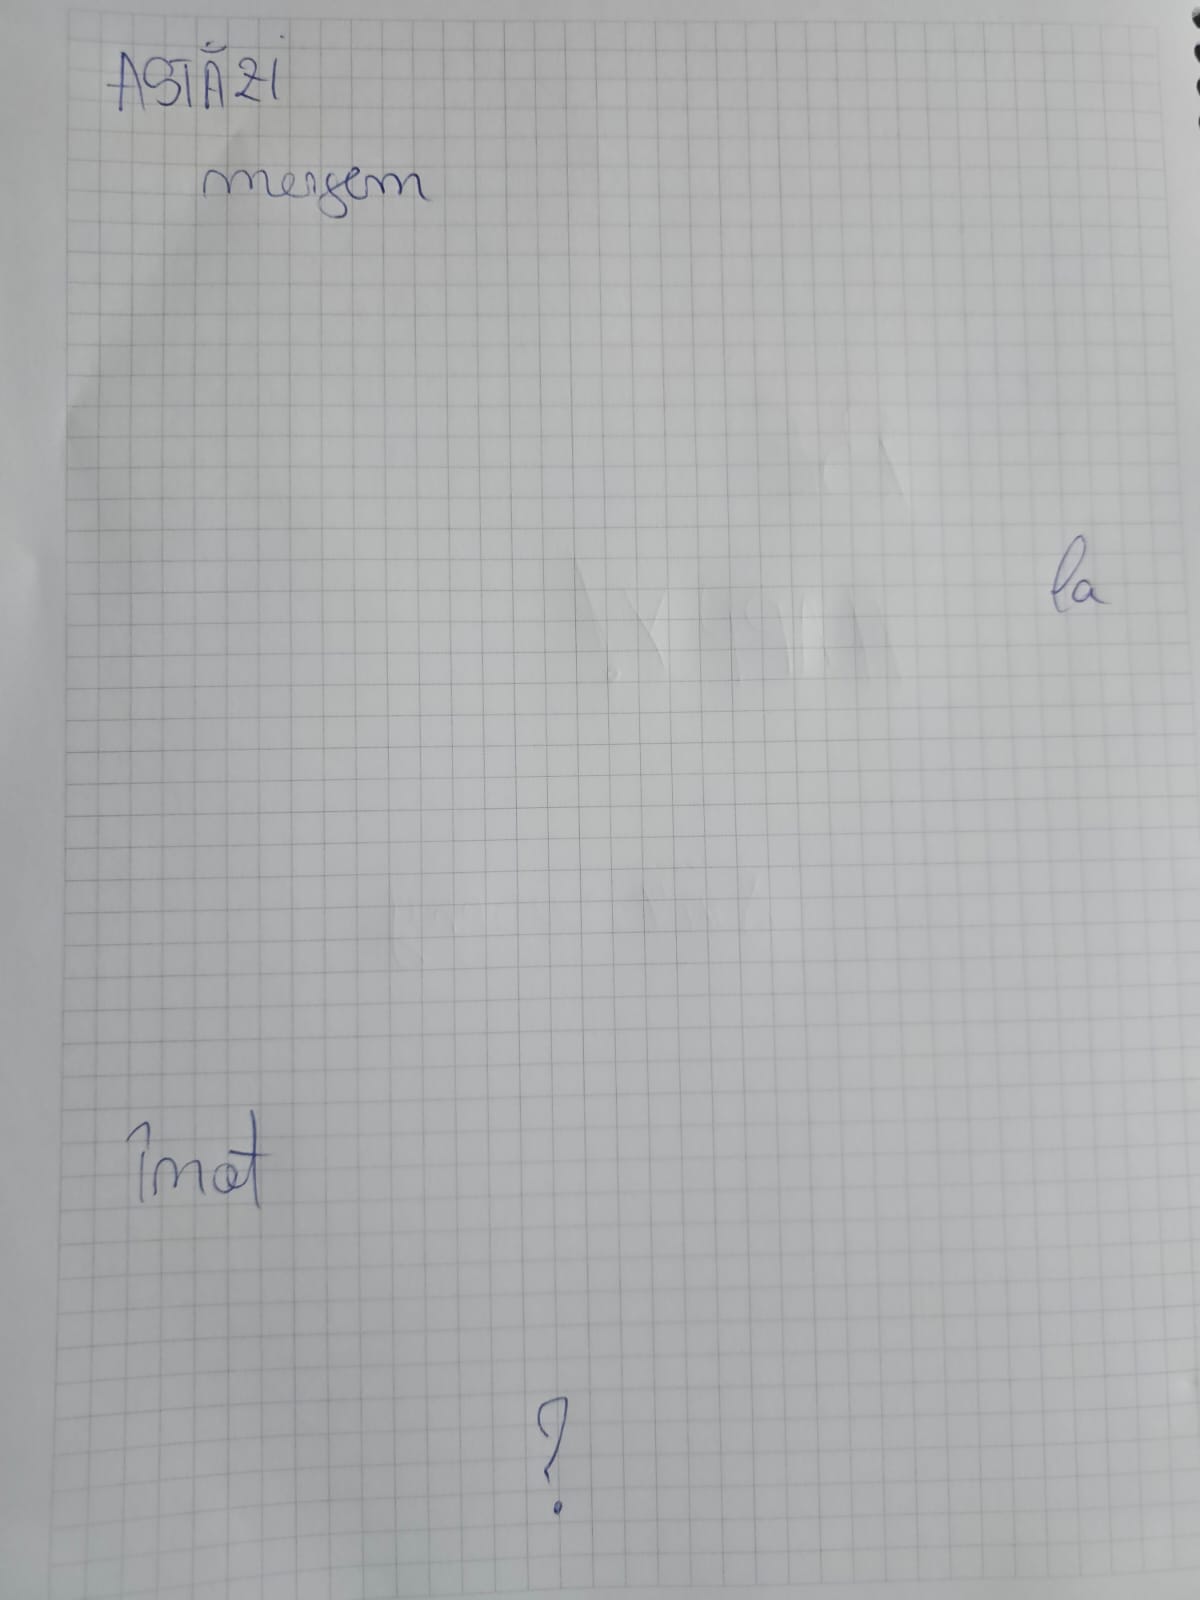 ASTĂZI
mergem
la
înot
?